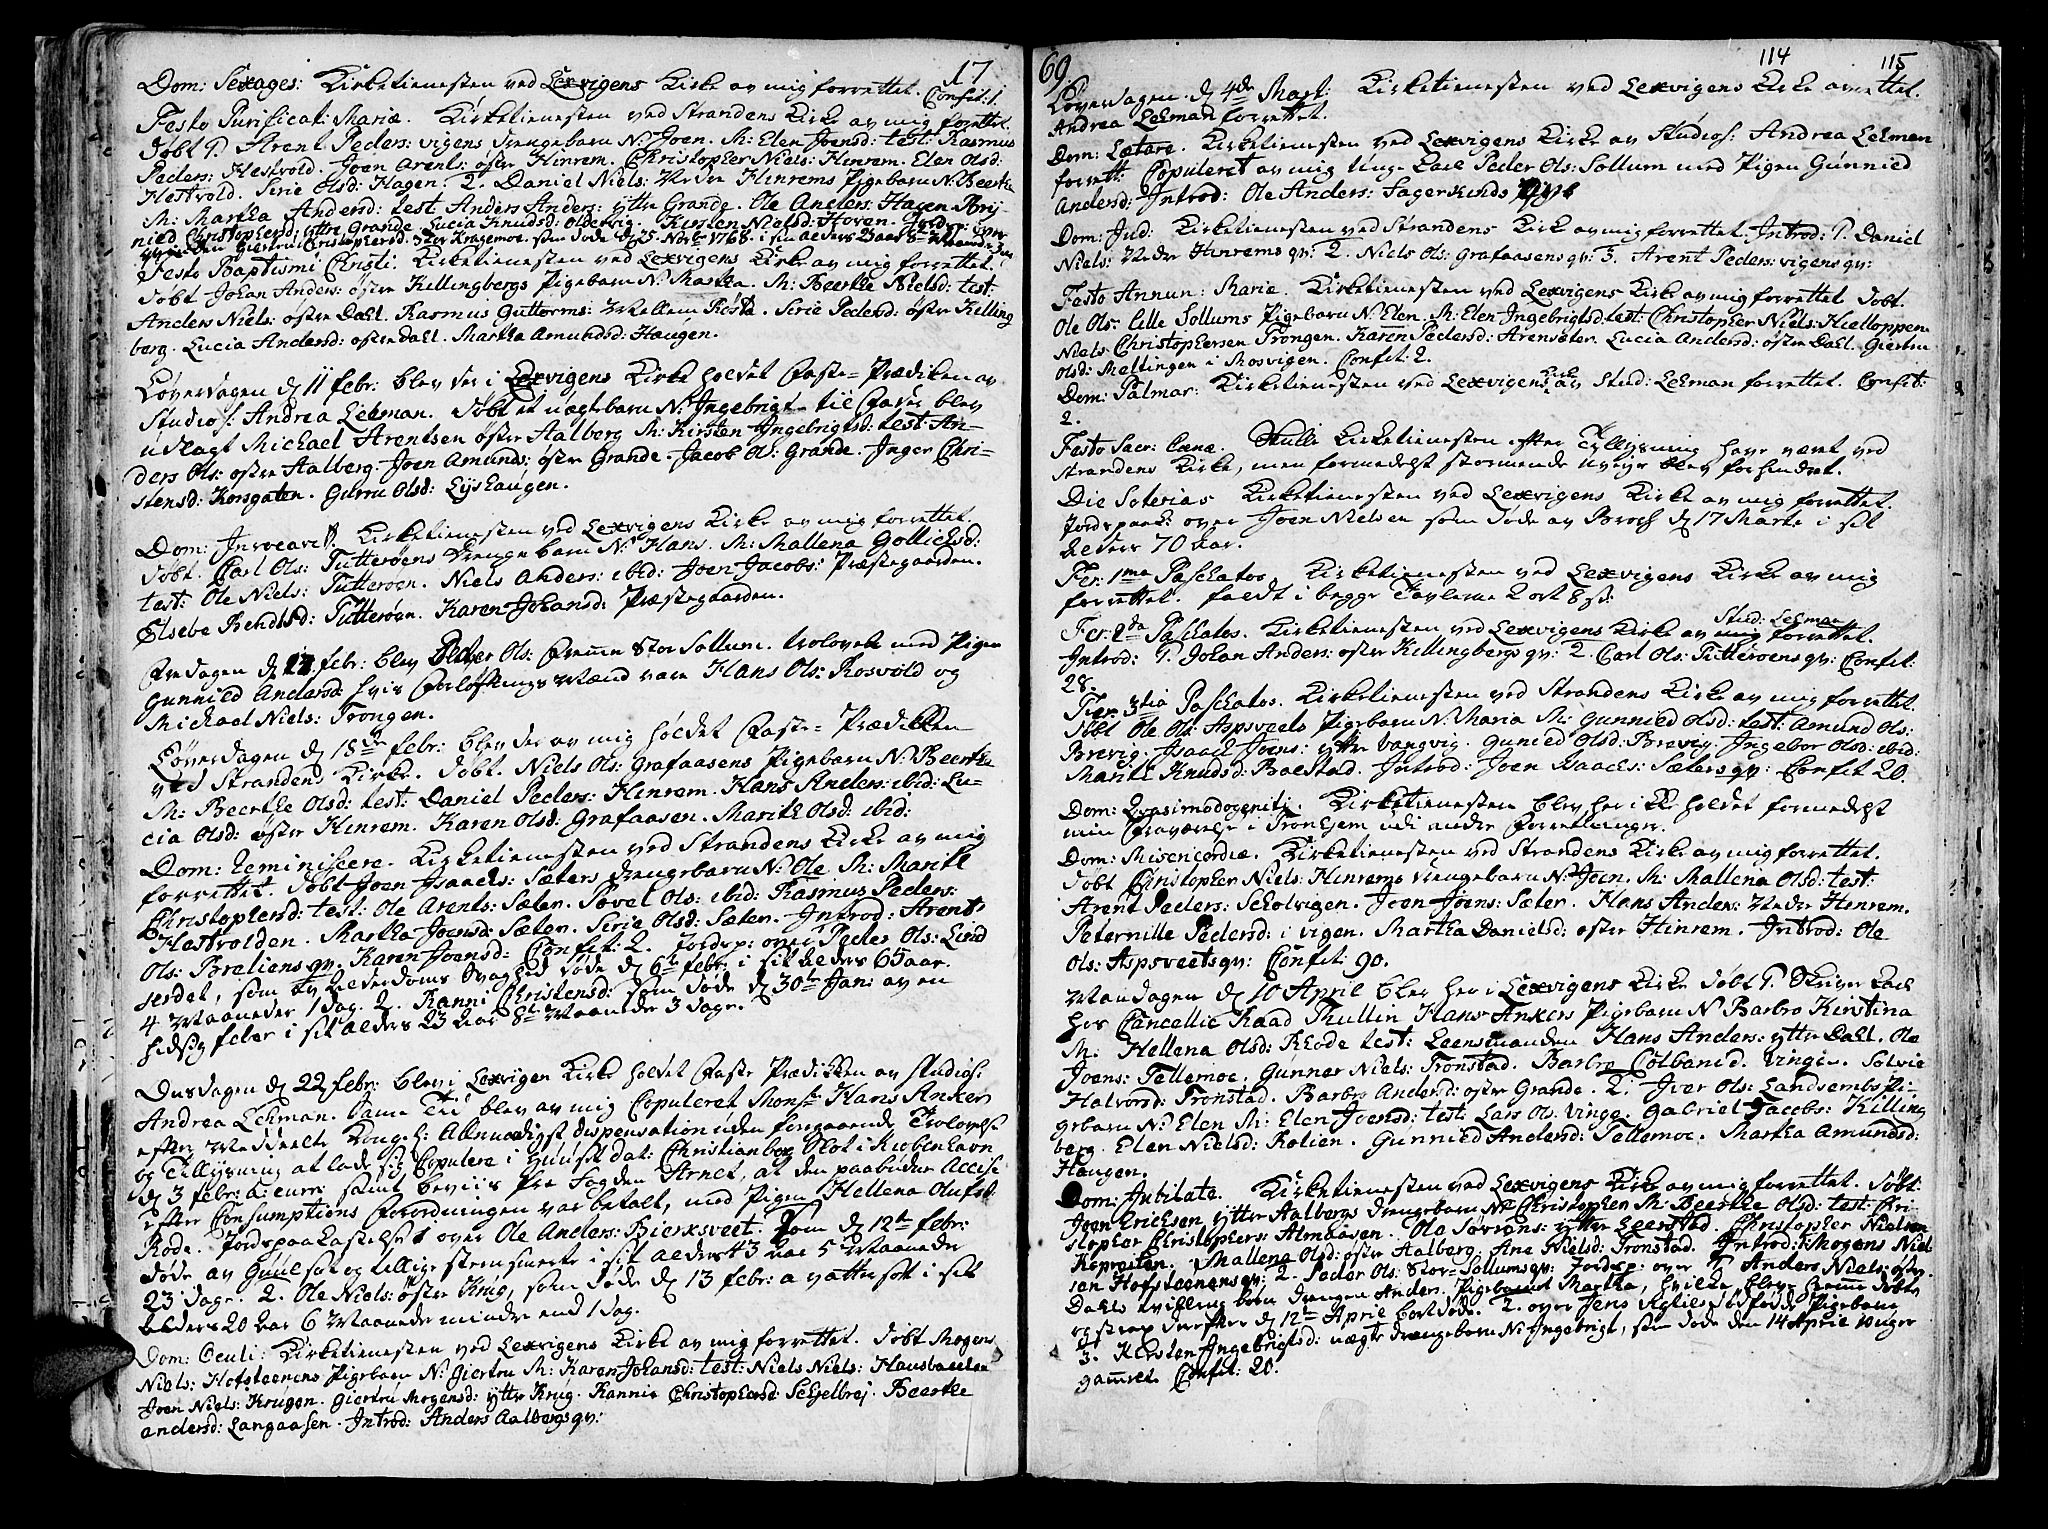 17
Dom: Sexages: Kirketienesten ved Lexvigens Kirke av mig forrettet. Confit: 1.
Festo Purificat: Mariæ. Kirketienesten ved Strandens Kirke av mig forrettet.
Døbt 1. Arent Peders: vigens drengebarn N: Joen. M: Elen Joensd: test: Rasmus
Peders: Hestvold. Joen Arents: øster Hinrem. Christopher Niels: Hinrem. Elen Olsd:
Hestvold. Sirie Olsd: Hagen. 2. Daniel Niels: Neder Hinrems Pigebarn N: Beerthe
M: Martha Andersd: test Anders Anders: ytter Grande. Ole Anders: Hagen Bry-
nild Christophersd: yttre Grande. Lucia Knudsd: Oldervig. Kirsten Nielsd: Hoven. Jordsp: over
Giertru Christophersd: Stor Kragemoe. som døde d 25 Novbr 1768. i sin alders 23 aar 8te Maaneder
Festo Baptismi Christi. Kirketienesten ved Lexvigens Kirke av mig forrettet.
Døbt Johan Anders: østre Killingbergs Pigebarn N: Martha. M: Beerthe Nielsd: test:
Anders Niels: østre Dahl. Rasmus Guttorms: Mellem Røsta. Sirie Pedersd: østre Killing
berg. Lucia Andersd: østre Dahl. Martha Amundsd: Haugen.
Løverdagen d 11 febr: blev her i Lexvigens Kirke holdet Faste-Prædiken av
Studios: Andrea Lehman. Døbt et uægte barn N: Ingebrigt. til Fader blev
udlagt Michael Arentsen øster Aalberg M: Kirsten Ingebrigtsd: test: An-
ders Ols: østre Aalberg. Joen Amunds: østre Grande. Jacob Ol: Grande. Inger Chri-
stensd: Korsgaten. Gurru Olsd: Lyshaugen.
Dom: Invocavit. Kirketienesten ved Lexvigens Kirke av mig forrettet.
Døbt. Carl Ols: Tutterøens drengebarn N: Hans. M: Mallena Gollichsd:
test: Ole Niels: Tutterøen. Niels Anders: ibid: Joen Jacobs: Præstegaarden.
Elsebe Bendtsd: Tutterøen. Karen Johansd: Præstegaarden.
Fredagen d febr: blev Peder Ols: Fremme Stor Sollum. trolovet med Pigen
Gunnild Andersd: hvis Forlofnings Mænd vare Hans Ols: Rosvold og
Michael Niels: Trongen.
Løverdagen d 18de febr: blev der av mig holdet Faste-Prædikken
ved Strandens Kirke. Døbt. Niels Ols: Grafaasens Pigebarn N: Beerthe
M: Beerthe Olsd: test: Daniel Peders: Hinrem. Hans Anders: ibid: Lu-
cia Olsd: øster Hinrem. Karen Olsd: Grafaasen. Marith Olsd: ibid:
Dom: Reminiscere. Kirketienesten ved Strandens Kirke av mig
forrettet. Døbt Joen Isaachs: Sæters drengebarn N: Ole M: Marith
Christophersd: test: Ole Arents: Sæter. Povel Ols: ibid: Rasmus Peders:
Hestvolden. Martha Joensd: Sæter. Sirie Olsd: Sæter. Introd: Arent
Ols: Bræliens qv: Karen Joensd: Confit: 2. Jordsp: over Peder Ols: Lind
serdet, som av Alderdoms Svaghed døde d 6te febr: i sit alders 65 aar.
4 Maaneder 1 dag. 2. Ranni Christensd: som døde d 30te Jan: av en
hidsig feber i sit alders 23 aar 8te Maaneder 3 dage.
Onsdagen d 22 febr: blev i Lexvigen Kirke holdet Faste Prædikken av Studios:
Andrea Lehman. Same Tiid blev av mig Copuleret Monsr Hans Anker
efter Meddeelte Kongel: Allernaadigst dispensation uden foregaaende Trolovelse
og Tillysning at lade sig Copulere i Huuset dat: Christianborg Slot i Kiøbenhavn
d 3 febr: a: curr: samt beviis fra Fogden Arnet, at den paabudne Accise
efter Consumptions Forordningen var betalt, med Pigen Hellena Olufsd:
Rode. Jordspaakastelse 1 over Ole Anders: Bierksveet. Som d 12te febr:
døde av Guulsot og tillige Steensmerte i sit alders 43 aar 5 Maaneder
23 dage. 2. Ole Niels: øster Krug, som døde d 13 febr: av vattersott i sit
alders 20 aar 6 Maaneder mindre end 1 dag.
Dom: Oculi: Kirketienesten ved Lexvigens Kirke av mig forrettet. Døbt Mogens
Niels: Hofsteenens Pigebarn N: Giertru M: Karen Johansd: test: Niels Niels: Hansbachen
Joen Niels: Krugen. Giertru Mogensd: ytter Krug. Rannie Christophersd: Schielbrej. Beerthe
andersd: Langaasen. Introd: Anders Aalbergs qv:
69
114 115
Løverdagen d 4de Mart: Kirketienesten ved Lexvigens Kirke av
Andrea Lehman forrettet.
Dom: Lætare. Kirketienesten ved Lexvigens Kirke av Studios: Andrea Lehman
forrett: Copuleret av mig Unge Karl Peder Ols: Sollum med Pigen Gunnild
Andersd: Introd: Ole Anders: Fagerlunds
Dom: Jud: Kirketienesten ved Strandens Kirke av mig forrettet. Introd: 1. Daniel
Niels: Neder Hinrems qv: 2. Niels Ols: Grafaasens qv: 3. Arent Peders: vigens qv:
Festo Annun: Mariæ. Kirketienesten ved Lexvigens Kirke av mig forrettet Døbt.
Ole Ols: lille Sollums Pigebarn N: Elen. M: Elen Ingebrigtsd: test: Christopher Niels: Kielloppen
Niels Christophersen Trongen. Karen Pedersd: Arensæter. Lucia Andersd: østre Dahl. Giertru
Olsd: Meltingen i Mosvigen. Confit: 2.
Dom: Palmar: Kirketienesten ved Lexvigens Kirke av Stud: Lehman forrettet. Confit:
2.
Festo Sacr: Cænæ. Skulle Kirketienesten efter Tillysning have været ved
Strandens Kirke, men formedelst stormende uveyr blev forhindret.
Die Soterias. Kirketienesten ved Lexvigens Kirke av mig forrettet.
Jordspaak: over Joen Nielsen som døde av Brok d 17 Marts i sit
alders 70 aar.
Fer: 1ma Paschatos. Kirketienesten ved Lexvigens Kirke av mig
forrettet. faldt i begge Tavlerne 2 ort 8 s:
Fer: 2da Paschatos. Kirketienesten ved Lexvigens Kirke av Stud: Lehman forrettet.
Introd: 1. Johan Anders: øster Killingbergs qv: 2. Carl Ols: Tutterøens qv: Confit:
28.
Fer: 3tia Paschatos. Kirketienesten ved Strandens Kirke av mig forrettet.
Døbt Ole Ols: Aspsveets Pigebarn N: Maria M: Gunnild Olsd: test: Amund Ols:
Brevig. Isaach Joens: yttre Vangvig. Gunild Olsd: Brevig. Ingebor Olsd: ibid:
Marith Knudsd: Balstad. Introd: Joen Isaachs: Sæters qv: Confit 20.
Dom: Qvasimodogeniti. Kirketienesten blev her ikke holdet formedelst
min fraværelse i Tronhiem udi andre Forretninger.
Dom: Misericordiæ. Kirketienesten ved Strandens Kirke av mig forrettet.
Døbt Christopher Niels: Hinrems drengebarn N: Joen. M: Mallena Olsd: test:
Arent Peders: Scholvigen. Joen Joens: Sæter. Hans Anders: Neder Hinrem.
Peternille Pedersd: i vigen. Martha Danielsd: øster Hinrem. Introd: Ole
Ols: Aspsveets qv: Confit: 90.
Mandagen d 10 April blev her i Lexvigens Kirke døbt 1. Skriver Karl
hos Cancellie Raad Thullin Hans Ankers Pigebarn N Barbro Kirstina
M: Hellena Olsd: Rhode test: Leensmanden Hans Anders: yttre Dahl. Ole
Joens: Tellemoe. Gunner Niels: Tronstad. Barbro Colbanid. Vinge. Solvie
Halvorsd: Tronstad. Barbro Andersd: øster Grande. 2. Iver Ols: Landsembs Pi-
gebarn N: Elen M: Elen Joensd: test: Lars Ols: Vinge. Gabriel Jacobs: Killing
berg. Elen Nielsd: Kolien. Gunnild Andersd: Tellemoe. Martha Amundsd:
Haugen.
Dom: Jubilate. Kirketienesten ved Lexvigens Kirke av mig forrettet. Døbt:
Joen Erichsen ytter Aalbergs drengebarn N: Christopher M: Beerthe Olsd: test: Chri-
stopher Christophers: Almaasen. Ole Sørens: ytter Leerstad. Christopher Nielsen
Kepresten. Mallena Olsd: øster Aalberg. Ane Nielsd: Tronstad. Introd: 1 Mogens Niel
sen Hofsteenens qv: 2. Peder Ols: Stor-Sollums qv: Jordsp: over 1. Anders Niels: østre
Dahls tvilling børn drengen Anders. Pigebarnet Martha, hvilke bleve hieme døbte
og strax derefter d 12te April bortdøde. 2. over Jens dødfødde Pigebarn
3. Kirsten Ingebrigtsd: uægte drengebarn N: Ingebrigt, som døde den 14 April 10 uger
gammel. Confit: 20.